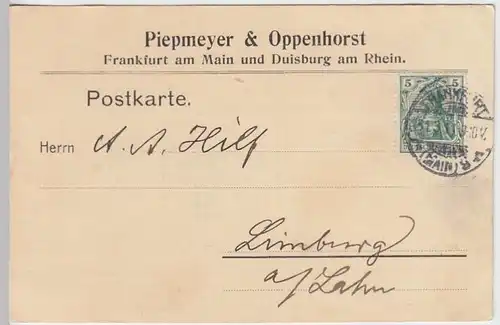 Piepmeyer & Oppenhorst
Frankfurt am Main und Duisburg am Rhein.
5 5
Postkarte.
FRANKFURT
(MAIN)
Herrn A. A. Hilf
Limburg
a/Lahn